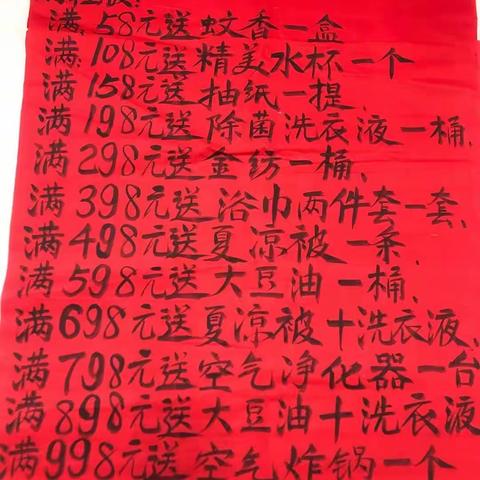 满58元送蚊香一盒
满108元送精美水杯一个
满158元送抽纸一提、
满198元送除菌洗衣液一桶、
满298元送金纺一桶、
满398元送浴巾两件套一套、
满498元送夏凉被一条、
满598元送大豆油一桶、
满698元送夏凉被十洗衣液、
满798元送空气净化器一台
满898元送大豆油十洗衣液
满998元送空气炸锅一个